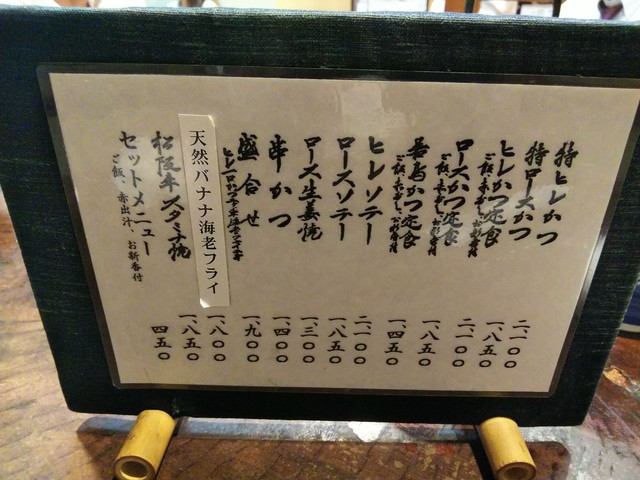 特ヒレかつ 二、一〇〇
特ロースかつ 一、八五〇
ヒレかつ定食 二、一〇〇
ご飯、赤だし、お新香付
ロースかつ定食 一、八五〇
ご飯、赤だし、お新香付
若鳥かつ定食 一、四五〇
ご飯、赤だし、お新香付
ヒレソテー 二、一〇〇
ロースソテー 一、八五〇
ロース生姜焼 一、三〇〇
串かつ 一、四〇〇
盛合せ 一、九〇〇
ヒレ一口かつ
天然バナナ海老フライ 一、八〇〇
松阪牛スタミナ焼 一、八五〇
セットメニュー 四五〇
ご飯、赤出汁、お新香付